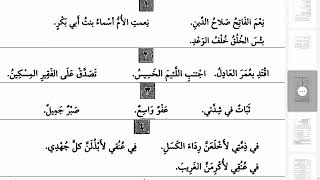 ١
نِعْمَ الفَاتِحُ صَلَاحُ الدِّينِ. نِعمتِ الأُمُّ أسْماءُ بنتُ أبي بَكْرٍ.
بِئْسَ الخُلُقُ خُلْفُ الوَعْدِ.
٢
اقْتَدِ بِعُمَرَ العَادِلُ. اجْتنبِ اللَّئِيمَ الخَسِيسُ. تَصَدَّقْ عَلَى الفَقِيرِ المِسْكِينُ.
٣
ثَبَاتٌ في شِدَّتي. عَفْوٌ وَاسِعٌ. صَبْرٌ جَمِيلٌ.
٤
في ذِمَّتِي لأَخْلَعَنَّ رِدَاءَ الكَسَلِ. فِي عُنُقِي لأَبْذُلَنَّ كلَّ جُهْدِي.
في عُنُقِي لأُكْرِمَنَّ الغَرِيبَ.